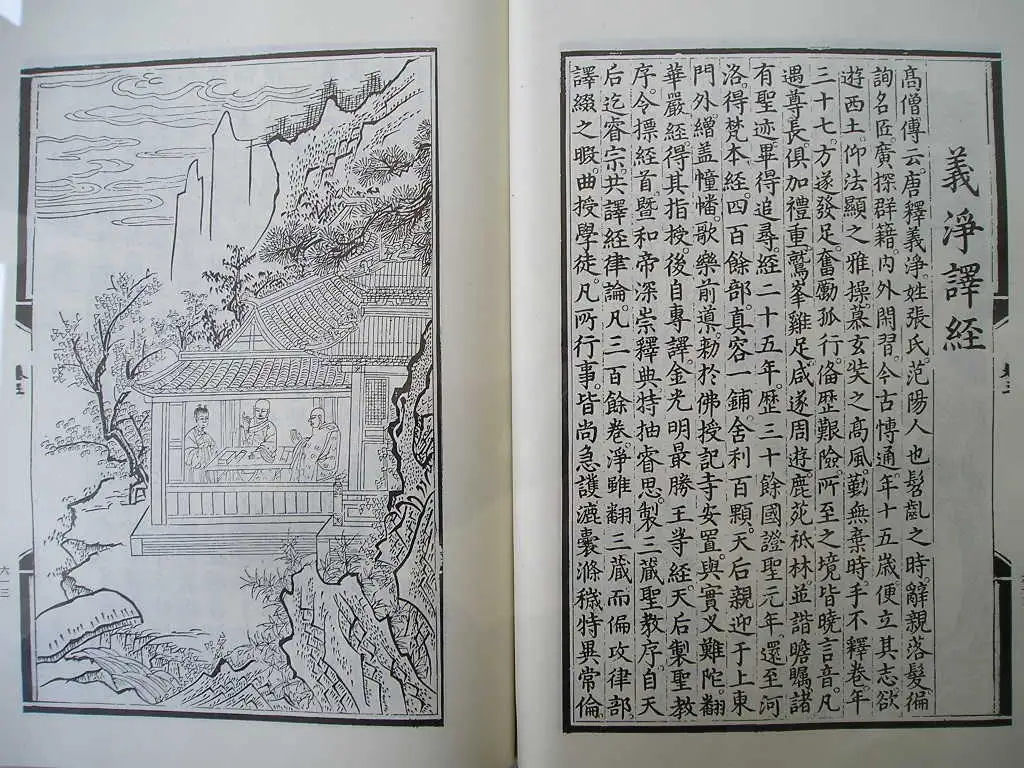 義淨譯經
高僧傳云。唐釋義淨。姓張氏。范陽人也。髫齔之時。辭親落髮。徧
詢名匠。廣探群籍。內外閑習。今古博通。年十五歲。便立其志。欲
遊西土。仰法顯之雅操。慕玄奘之高風。勤無棄時。手不釋卷。年
三十七。方遂發足。奮勵孤行。俻歷艱險。所至之境。皆曉言音。凡
遇尊長。俱加禮重。鷲峯雞足。咸遂周遊。鹿苑祇林。並諧瞻矚。諸
有聖迹。畢得追尋。經二十五年。歷三十餘國。證聖元年。還至河
洛。得梵本經。四百餘部。真容一鋪。舍利百顆。天后親迎于上東
門外。繒盖幢幡。歌樂前導。勑於佛授記寺安置。與實叉難陀。翻
華嚴經。得其指授。後自專譯。金光明最勝王等經。天后製聖教
序。令摽經首。暨和帝深崇釋典。特抽睿思。製三藏聖教序。自天
后迄睿宗。共譯經律論。凡三百餘卷。淨雖翻三藏。而偏攻律部。
譯綴之暇。曲授學徒。凡所行事。皆尚急護。漉囊滌穢。特異常倫
六一三